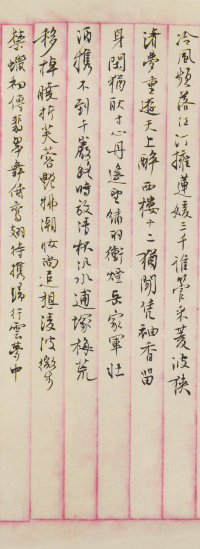 冷風頻落江汀擁蓮媛三千誰管采菱波襍
渚夢重遊天上醉西樓十二猶聞憑袖香留
身閑猶耿寸心丹遙望鏽羽衝煙岳家軍壯
酒攜不到千巖好時放清秋汎水逋塚梅荒
移棹晚折芙蓉艷拂潮妝尚追想淩波微步
禁蠟初傳翡翠舞倚鸞翅待攜歸行雲夢中